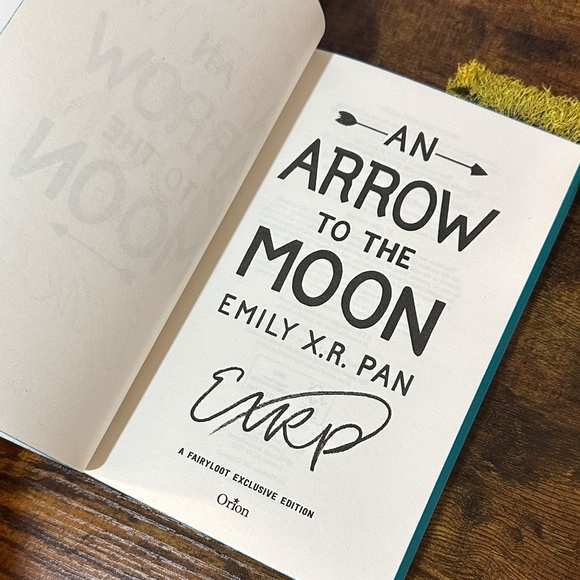 AN
ARROW
TO THE
MOON
EMILY X.R. PAN
EXRP
A FAIRYLOOT EXCLUSIVE EDITION
Orion